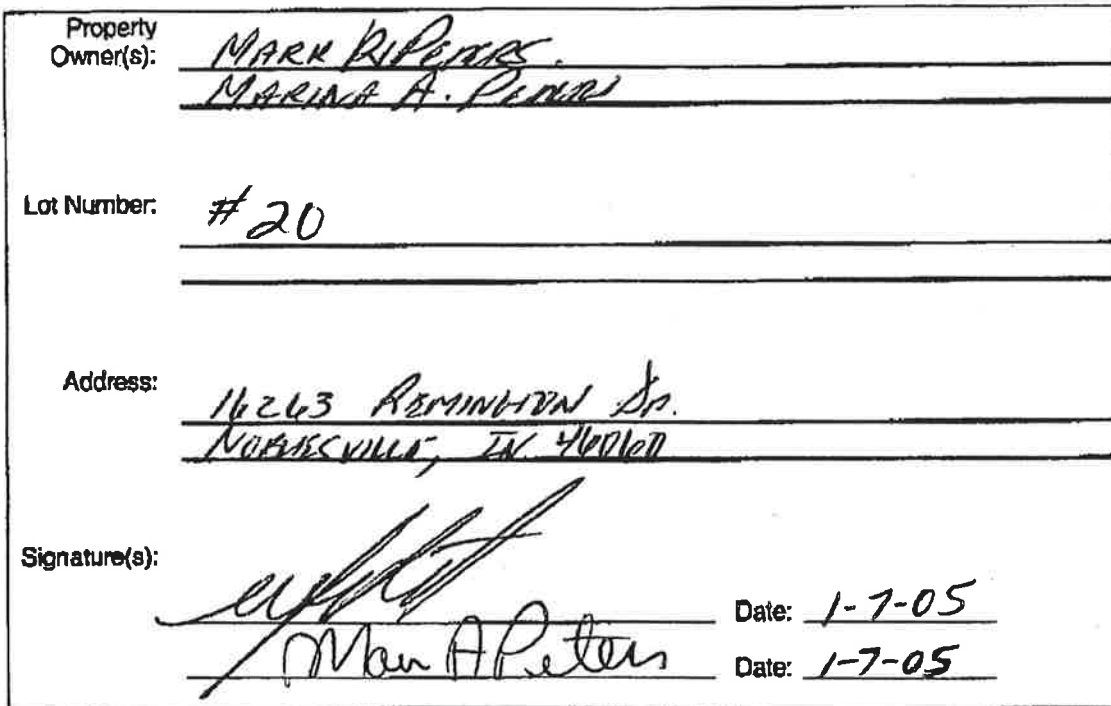 Property
Owner(s): MARK R. PETERS.
MARINA A. PETERS
Lot Number: # 20
Address: 16263 REMINGTON Dr.
NOBLESVILLE, IN 46060
Signature(s):
Date: 1-7-05
A Peters Date: 1-7-05